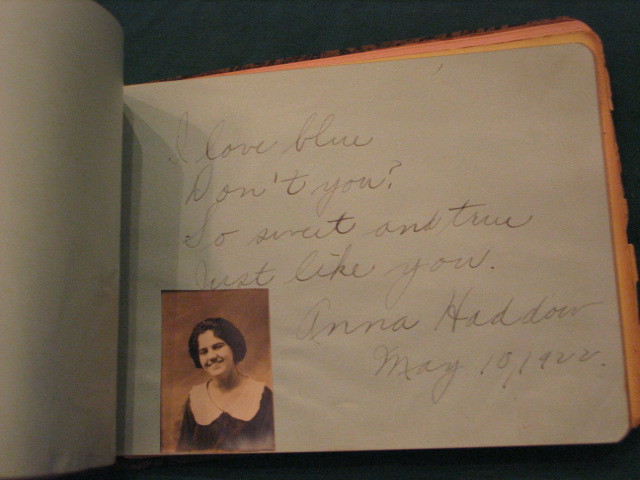 I love blue
Don't you?
So sweet and true
Just like you.
Anna Haddow
May 10, 1922.